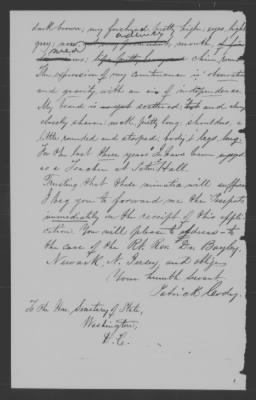 dark brown; my forehead pretty high; eyes, light
grey; nose, mouth,
chin, round.
The expression of my countenance is
and gravity with an air of independence.
My beard is scattered; and always
closely shaven; neck, pretty long; shoulders, a
little rounded and stooped; body & legs, long.
For the last three years I have been engaged
as a Teacher at Seton Hall.
Trusting that these minutia will suffice
I beg you to forward me the Passport
immediately on the receipt of this appli-
cation. You will please to address to
the care of the Rt. Rev. Dr. Bayley,
Newark, N. Jersey, and oblige
Your humble servant
Patrick
To the Hon. Secretary of State,
Washington,
D.C.